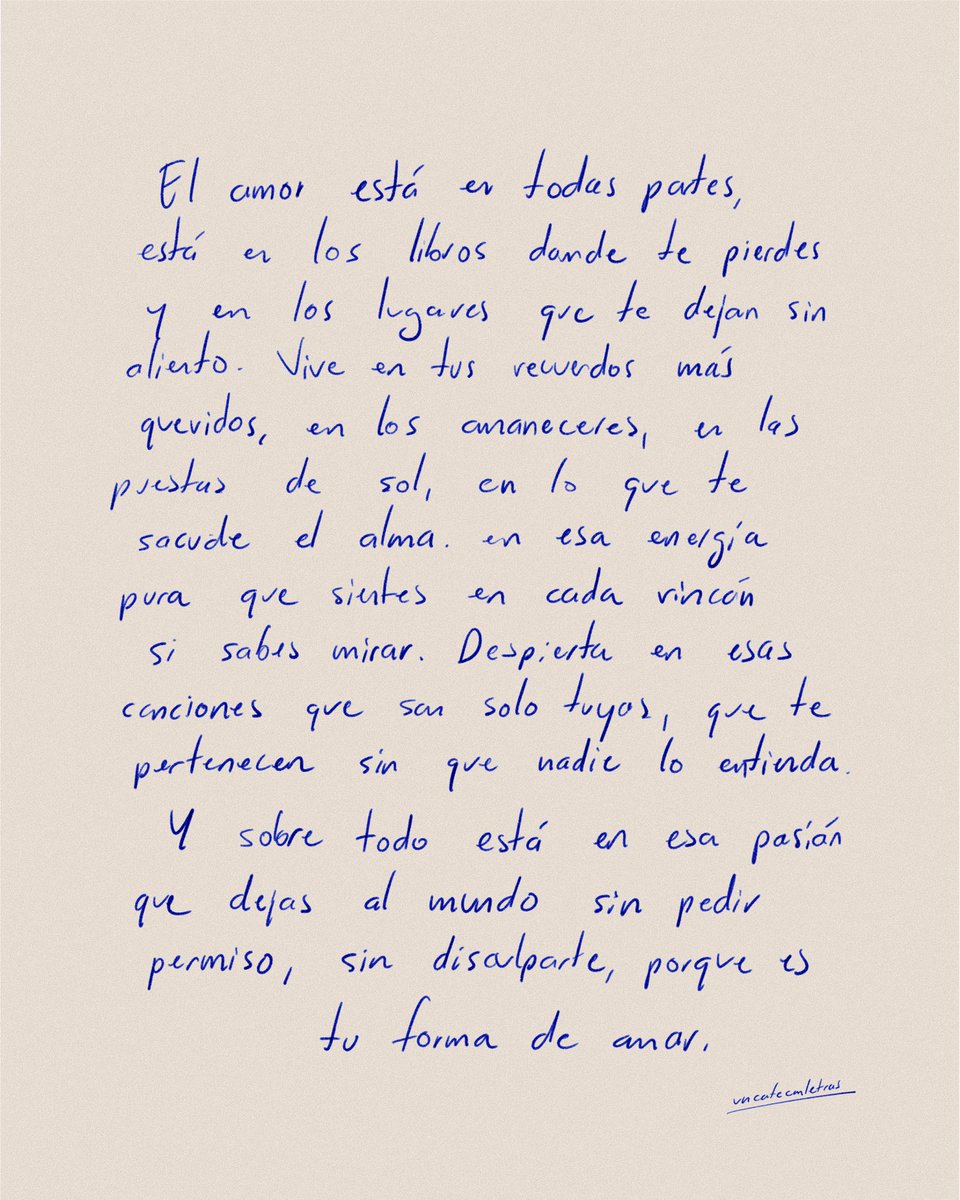 El amor está en todas partes,
está en los libros donde te pierdes
y en los lugares que te dejan sin
aliento. Vive en tus recuerdos más
queridos, en los amaneceres, en las
puestas de sol, en lo que te
sacude el alma. en esa energía
pura que sientes en cada rincón
si sabes mirar. Despierta en esas
canciones que son solo tuyas, que te
pertenecen sin que nadie lo entienda.
Y sobre todo está en esa pasión
que dejas al mundo sin pedir
permiso, sin disculparte, porque es
tu forma de amar.
uncafeconletras